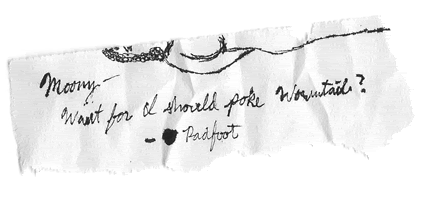 Moony-
Want for I should poke Wormtail?
- Padfoot